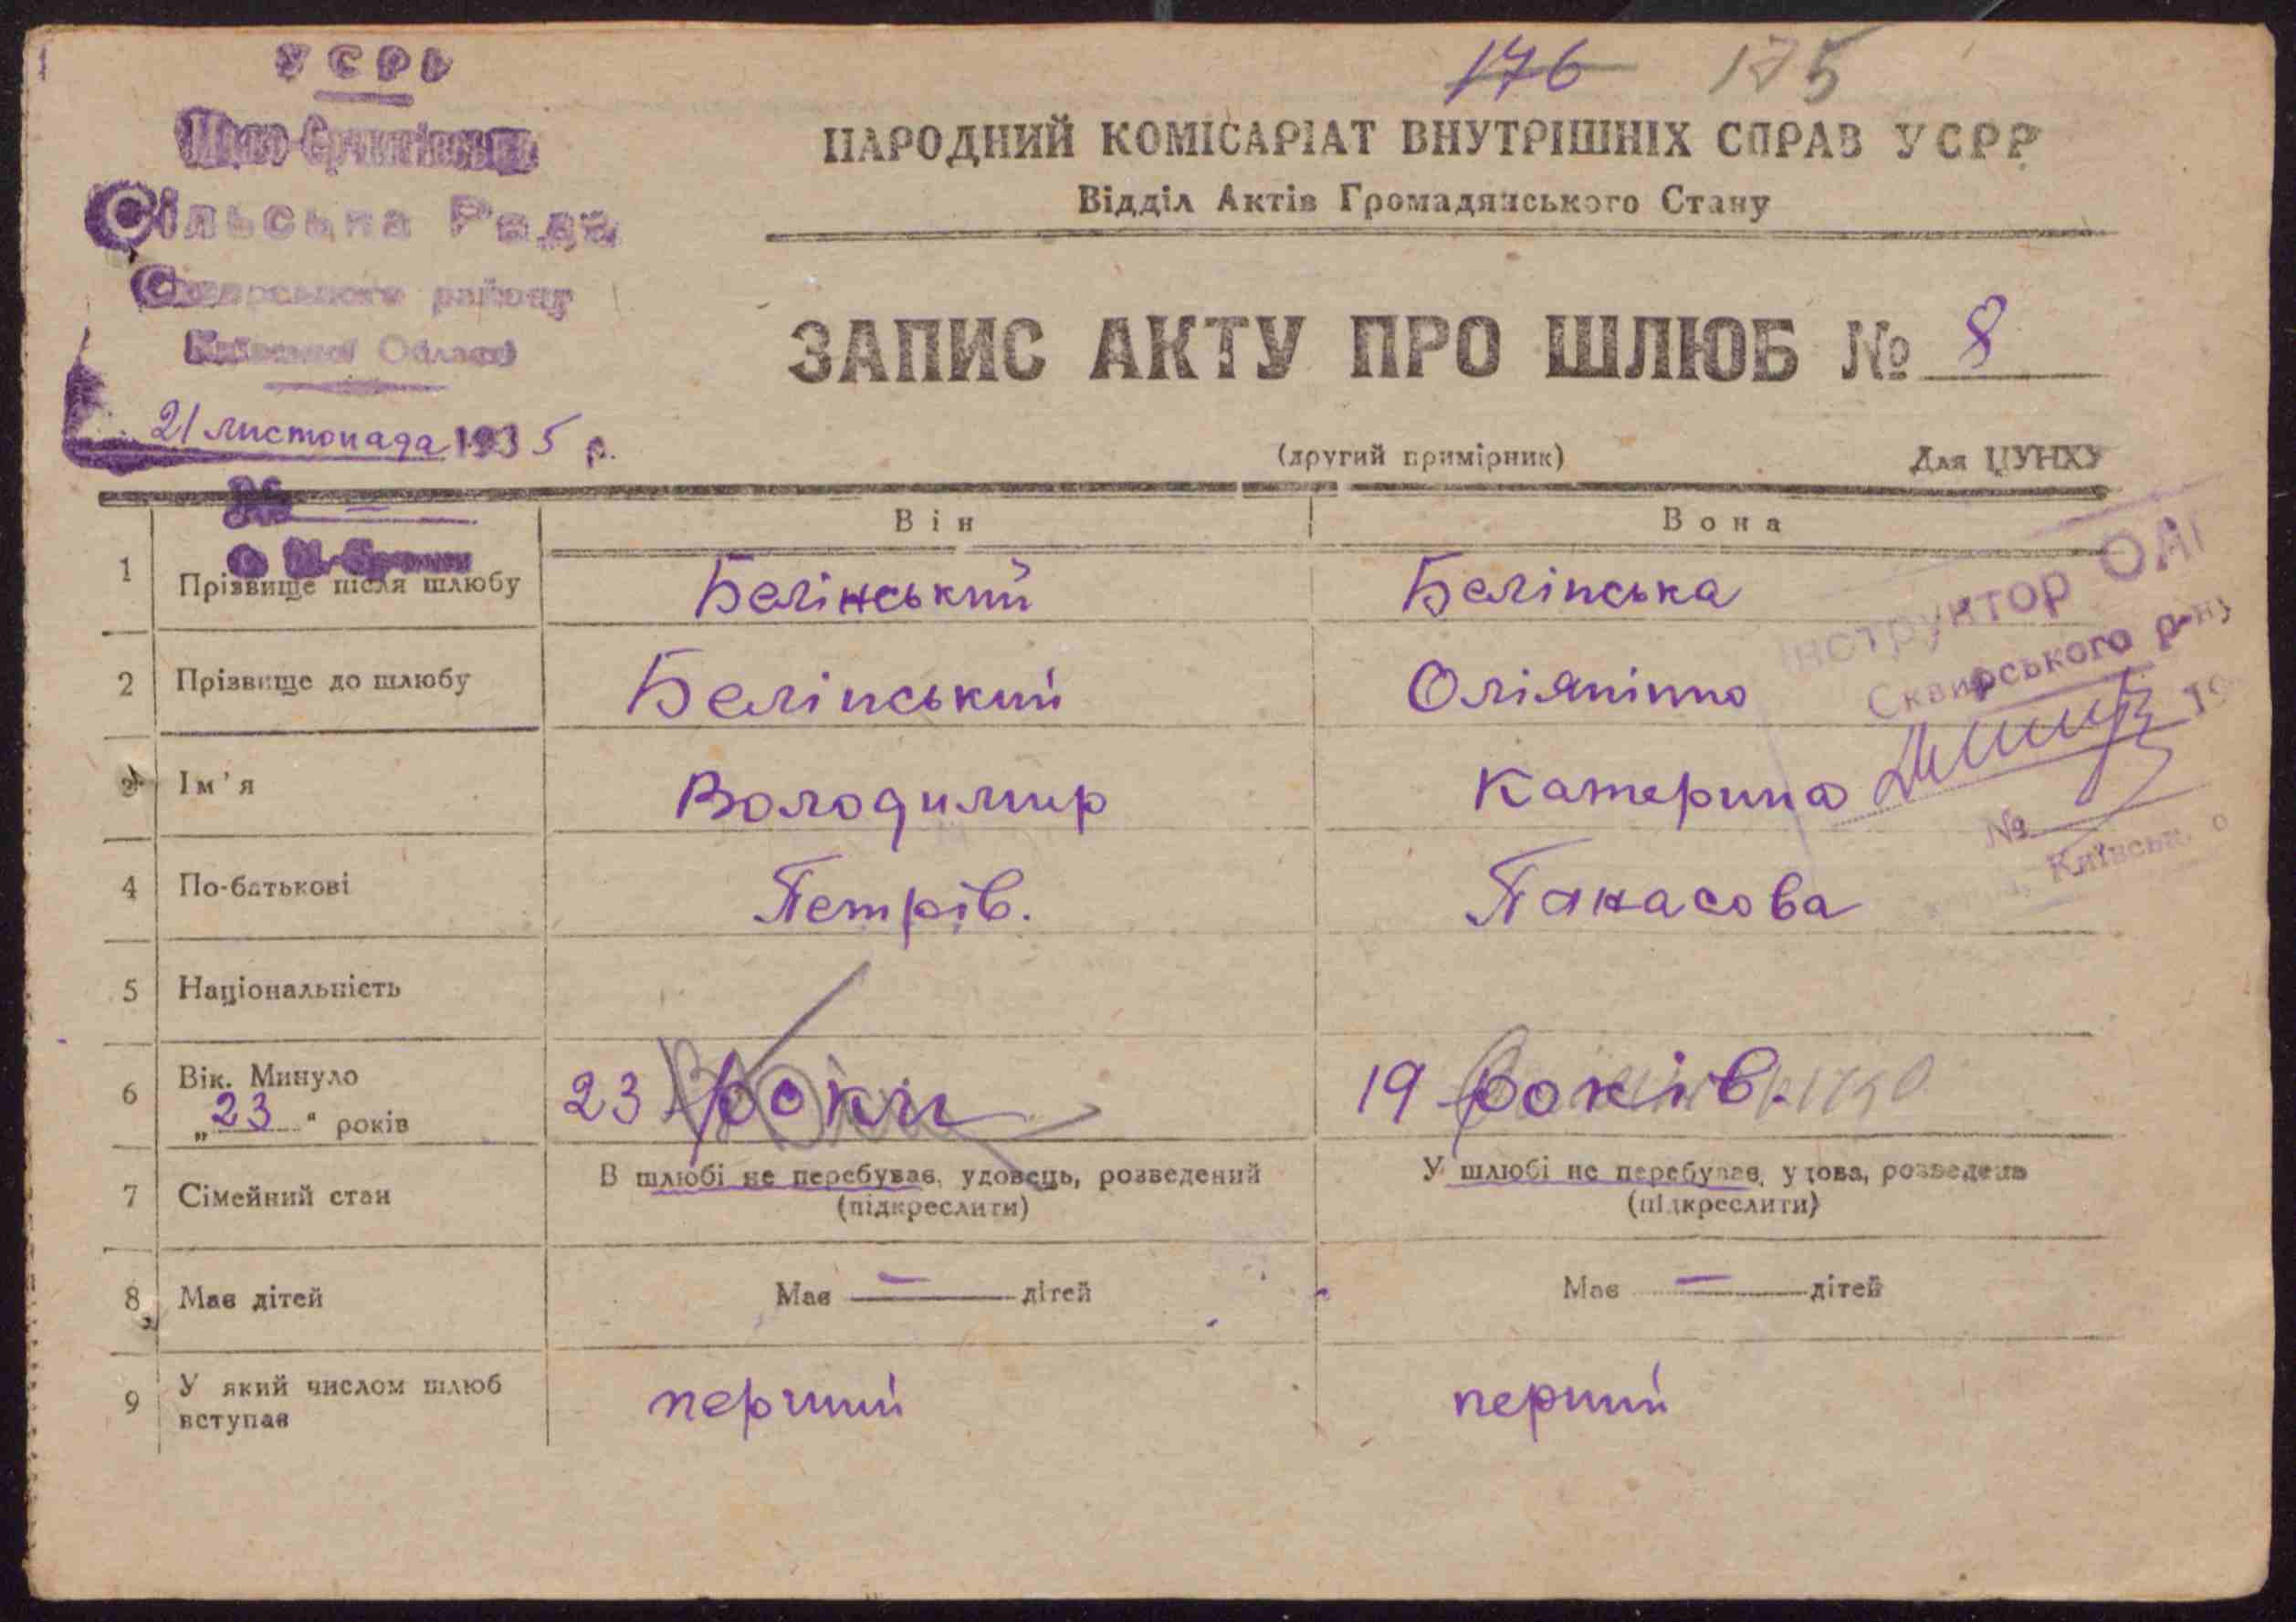 УСРР
176 175
Сільська Рада
Сквирського району
Київської Області
21 листопада 1935 р.
№ —
НАРОДНИЙ КОМІСАРІАТ ВНУТРІШНІХ СПРАВ УСРР
Відділ Актів Громадянського Стану
ЗАПИС АКТУ ПРО ШЛЮБ № 8
(другий примірник) Для ЦУНХУ
Він Вона
1 Прізвище після шлюбу Белінський Белінська
2 Прізвище до шлюбу Белінський
3 Ім'я Володимир Катерина
4 По-батькові Петрів. Панасова
5 Національність
6 Вік. Минуло „23" років 23 роки 19 років.
7 Сімейний стан В шлюбі не перебував, удовець, розведений (підкреслити) У шлюбі не перебуває, удова, розведена (підкреслити)
8 Має дітей Має — дітей Має — дітей
9 У який числом шлюб вступає перший перший
Інструктор
Сквирського р-ну
№
Київськ.